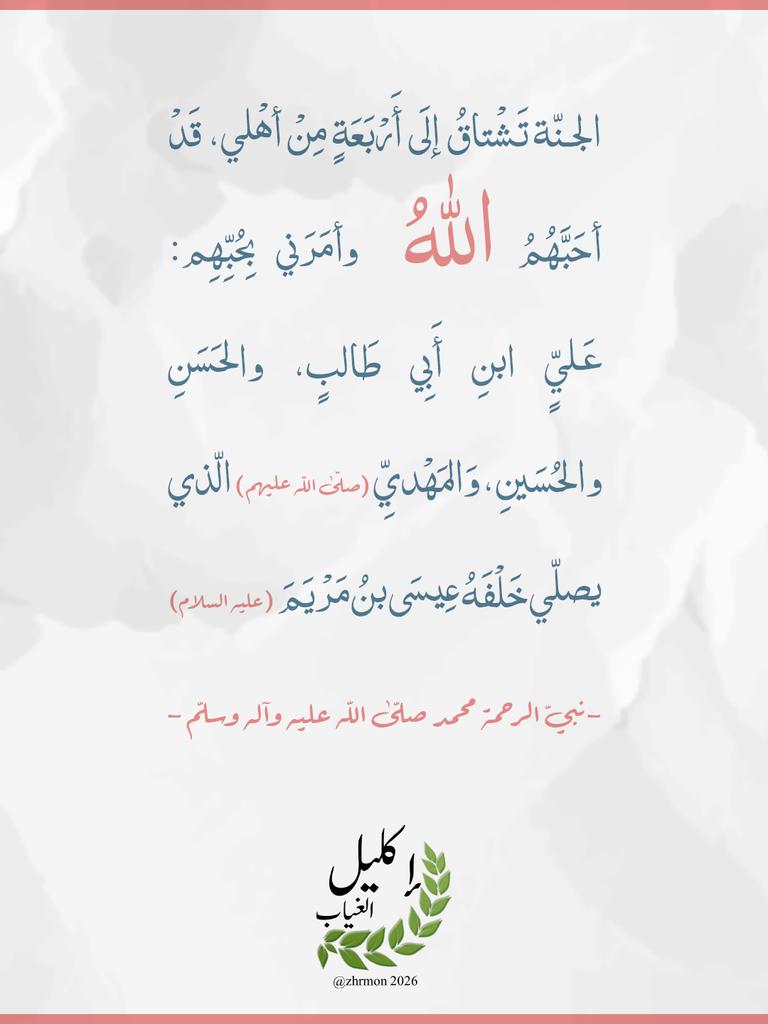 الجنّة تَشْتاقُ إلَى أَرْبَعَةٍ مِنْ أهْلي، قَدْ
أحَبَّهُمُ اللهُ وأمَرَني بِحُبِّهِم:
عَليٍّ ابنِ أَبِي طَالبٍ، والحَسَنِ
والحُسَينِ، وَالمَهْديِّ (صلّى اللّه عليهم) الّذي
يصلّي خَلْفَهُ عِيسَى بنُ مَرْيَمَ (عليه السلام)
-نبيّ الرحمة محمد صلّى اللّه عليه وآله وسلّم -
إكليل
الغياب
@zhrmon 2026